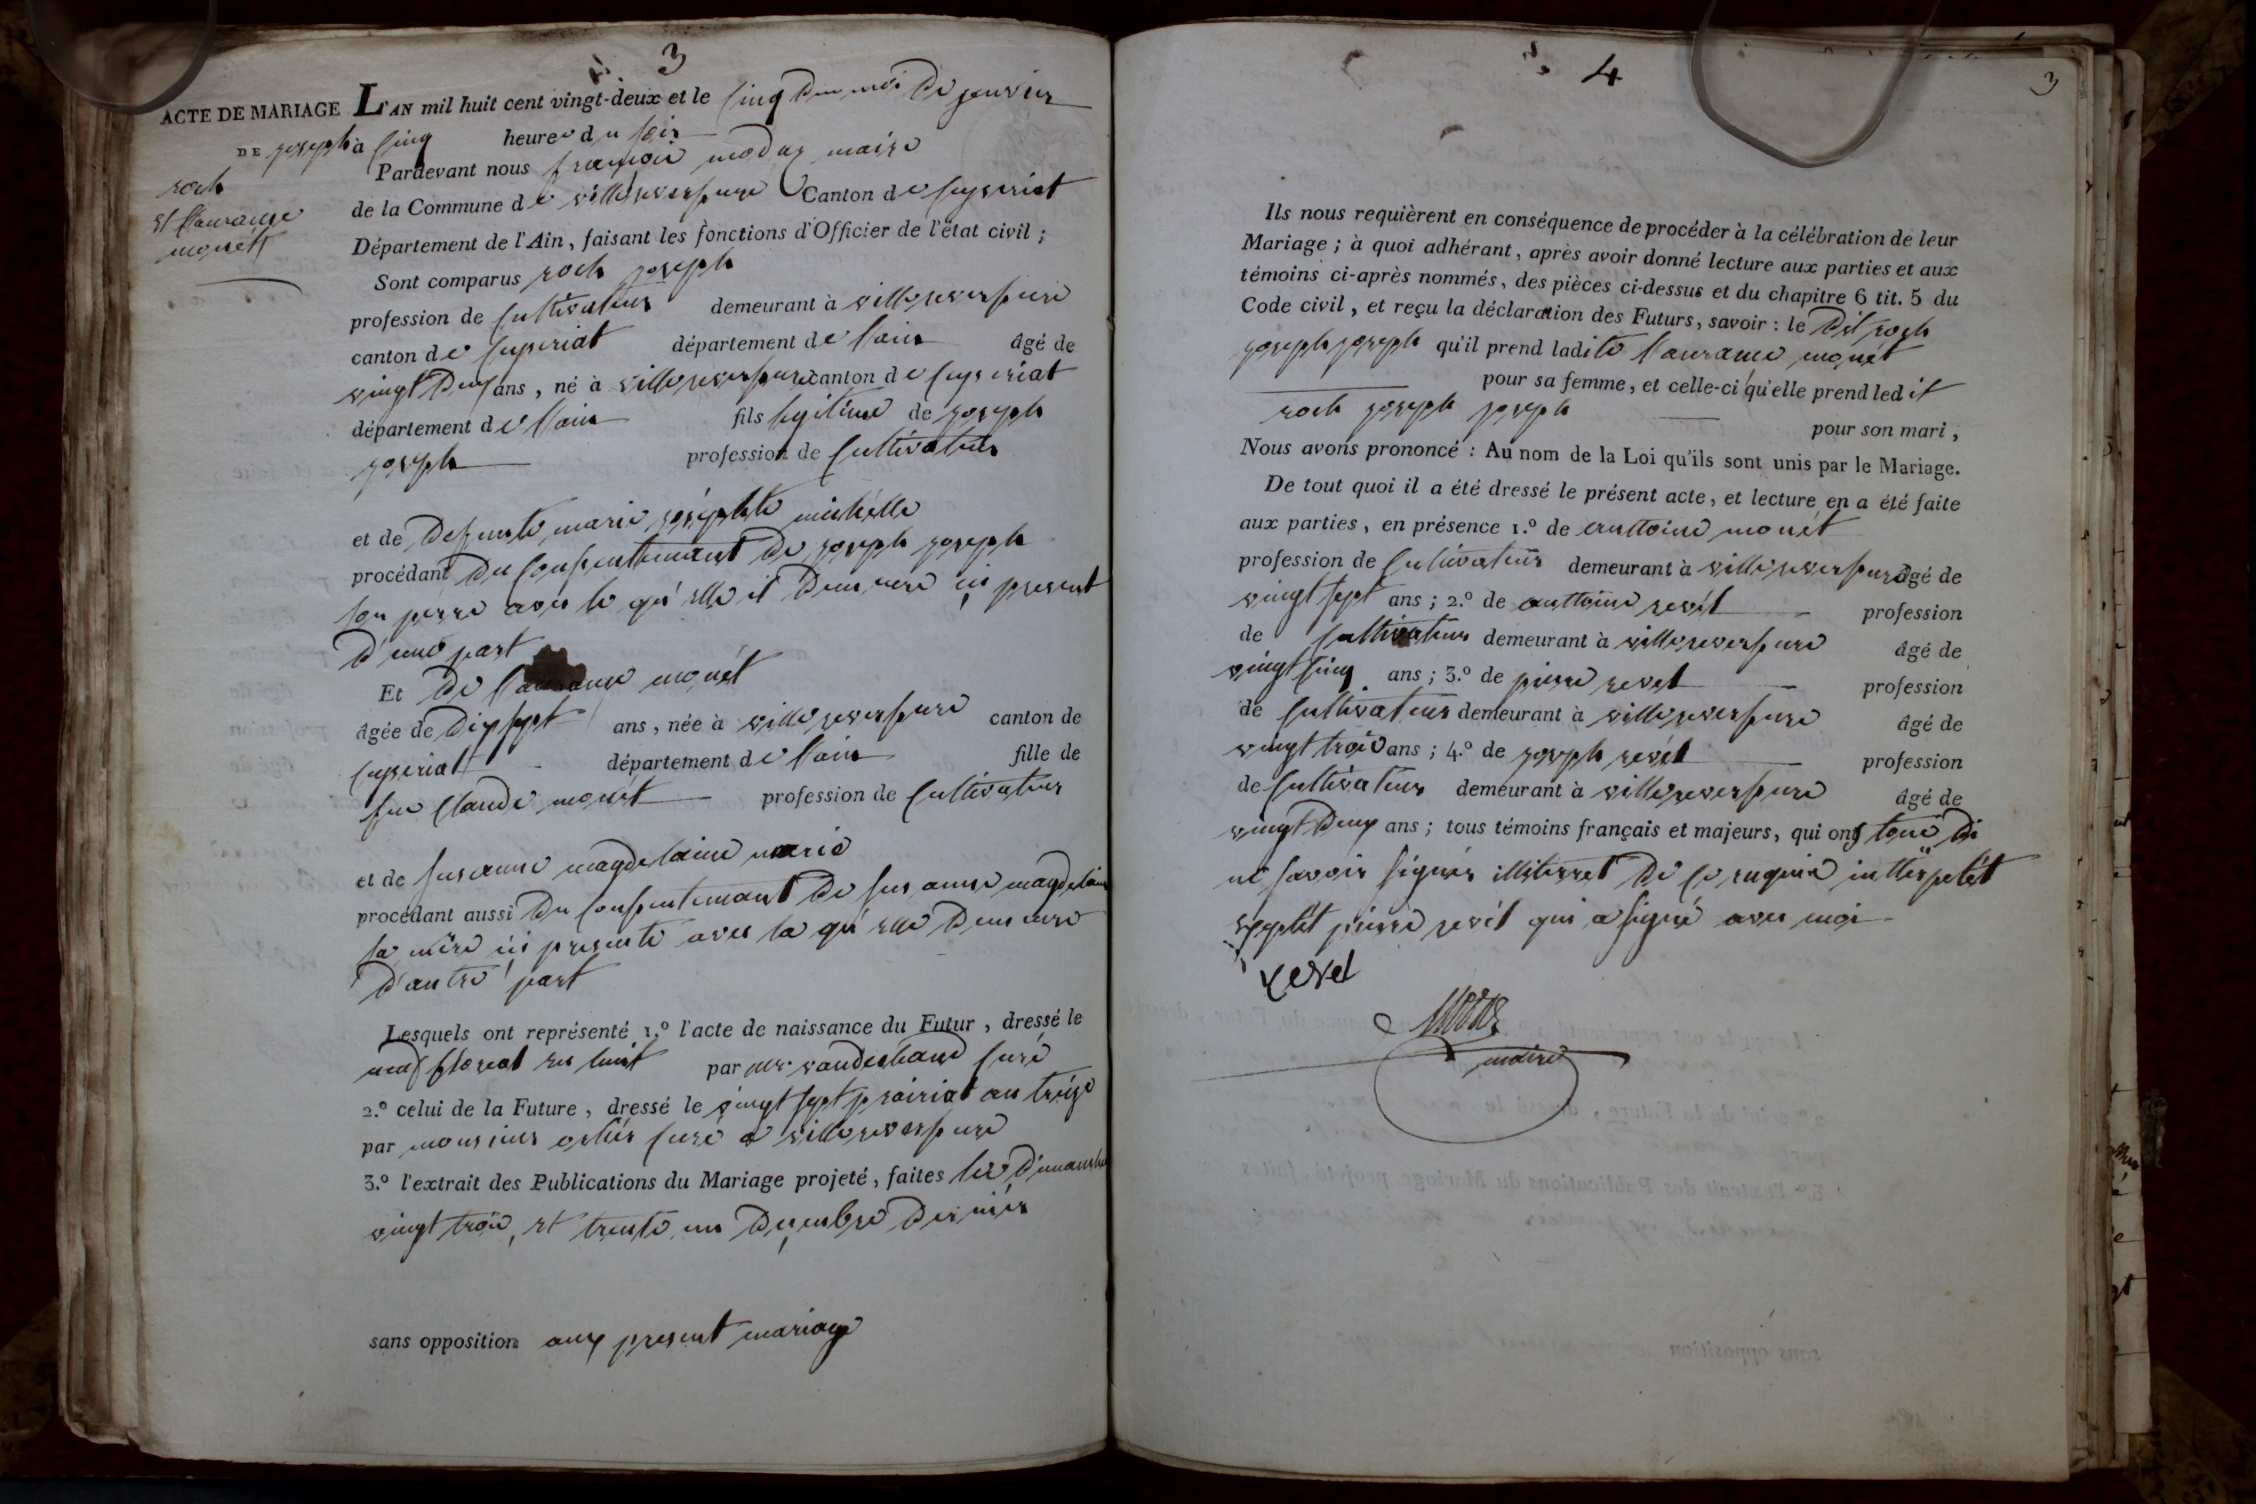 3
ACTE DE MARIAGE L'AN mil huit cent vingt-deux et le cinq du moi de janvier
DE joseph à cinq heures du soir
roch
Pardevant nous françois modas maire
et laurance
monett
de la Commune de villereversure Canton de ceyseriat
Département de l'Ain, faisant les fonctions d'Officier de l'état civil ;
Sont comparus roch joseph
profession de cultivateur demeurant à villereversure
canton de ceyseriat département de l'ain âgé de
vingt deux ans, né à villereversure canton de ceyseriat
département de l'ain fils legitime de joseph
joseph profession de cultivateur
et de defunte marie joséphte michélle
procédant du consentemant de joseph joseph
son perre avec le qu'elle il demeure ici present
d'une part
Et de laurance monét
âgée de dix sept ans, née à villereversure canton de
ceyseriat département de l'ain fille de
feu claude monet profession de cultivateur
et de susanne magdelaine marie
procédant aussi du consentemant de susanne magdelaine
sa mère ici presente avec la qu'elle demeure
d'autre part
Lesquels ont représenté 1.º l'acte de naissance du Futur, dressé le
neuf floreal en huit par mr curé
2.º celui de la Future, dressé le vingt sept prairial an treize
par monsieur curé a villereversure
3.º l'extrait des Publications du Mariage projeté, faites les dimanche
vingt trois, et trente un decembre dernier
sans opposition aux present mariage
4
3
Ils nous requièrent en conséquence de procéder à la célébration de leur
Mariage ; à quoi adhérant, après avoir donné lecture aux parties et aux
témoins ci-après nommés, des pièces ci-dessus et du chapitre 6 tit. 5 du
Code civil, et reçu la déclaration des Futurs, savoir : le dit roch
joseph joseph qu'il prend ladite laurance monét
pour sa femme, et celle-ci qu'elle prend ledit
roch joseph joseph
pour son mari,
Nous avons prononcé : Au nom de la Loi qu'ils sont unis par le Mariage.
De tout quoi il a été dressé le présent acte, et lecture en a été faite
aux parties, en présence 1.º de anttoine monét
profession de cultivateur demeurant à villereversure âgé de
vingt sept ans ; 2.º de anttoine revél profession
de cultivateur demeurant à villereversure âgé de
vingt cinq ans ; 3.º de pierre revel profession
de cultivateur demeurant à villereversure âgé de
vingt trois ans ; 4.º de joseph revél profession
de cultivateur demeurant à villereversure âgé de
vingt deux ans ; tous témoins français et majeurs, qui ont tous di
ne savoir signer de ce requis
pierre revél qui a signé avec moi
revel
modas
maire